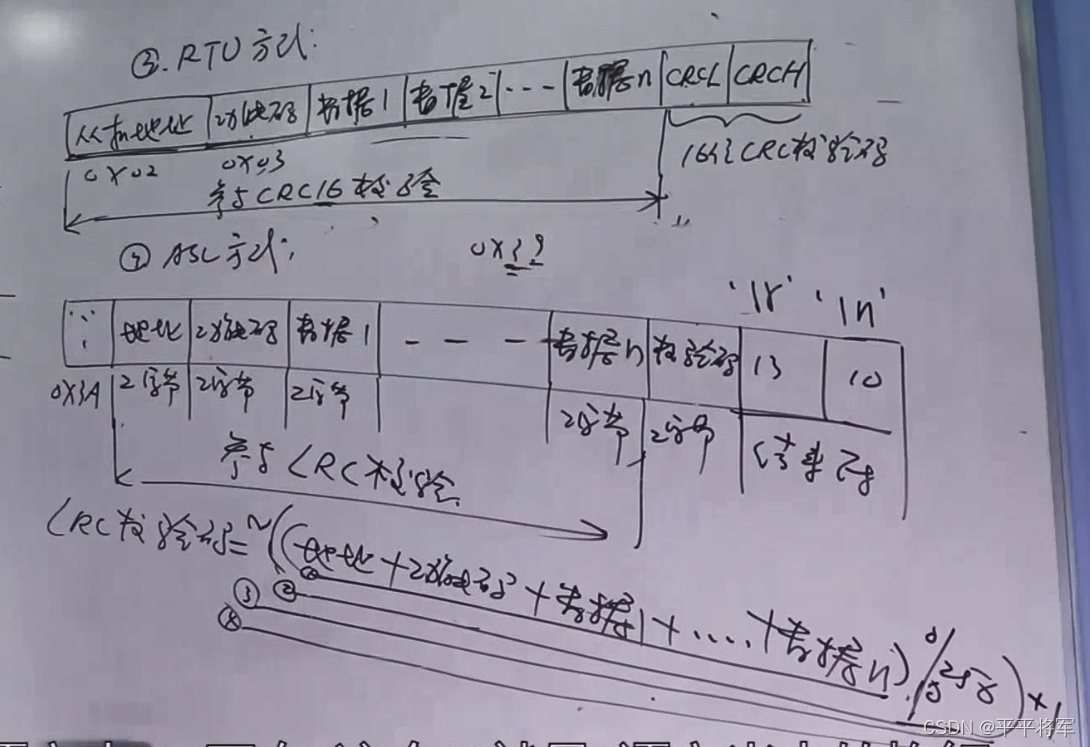 ③.RTU方式:
从机地址 功能码 数据1 数据2 ... 数据n CRCL CRCH
0x02 0x03 16位CRC校验码
参与CRC16校验
② ASC方式:
0x32
'\r' '\n'
: 地址 功能码 数据1 - - - 数据n 校验码 13 10
0x3A 2字节 2字节 2字节 2字节 2字节 结束符
参与LRC校验
LRC校验码=~((地址+功能码+数据1+....+数据n)%256)+1
① ② ③ ④
CSDN @平平将军